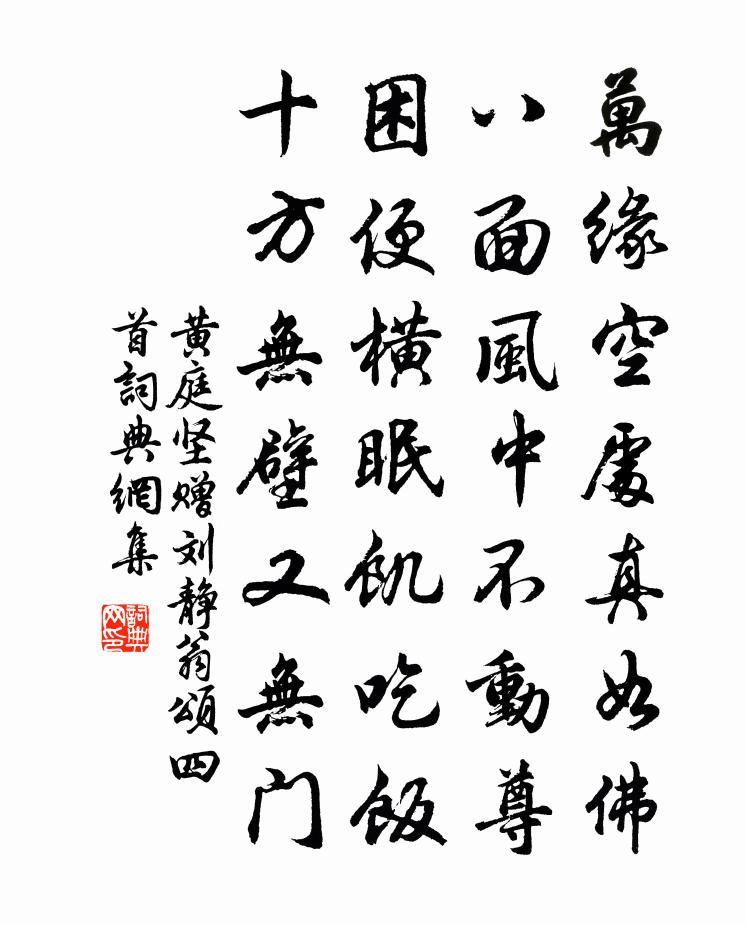 萬緣空處真如佛
八面風中不動尊
困便橫眠飢吃飯
十方無壁又無门
黄庭坚赠刘静翁頌四
首詞典網集
詞典网印